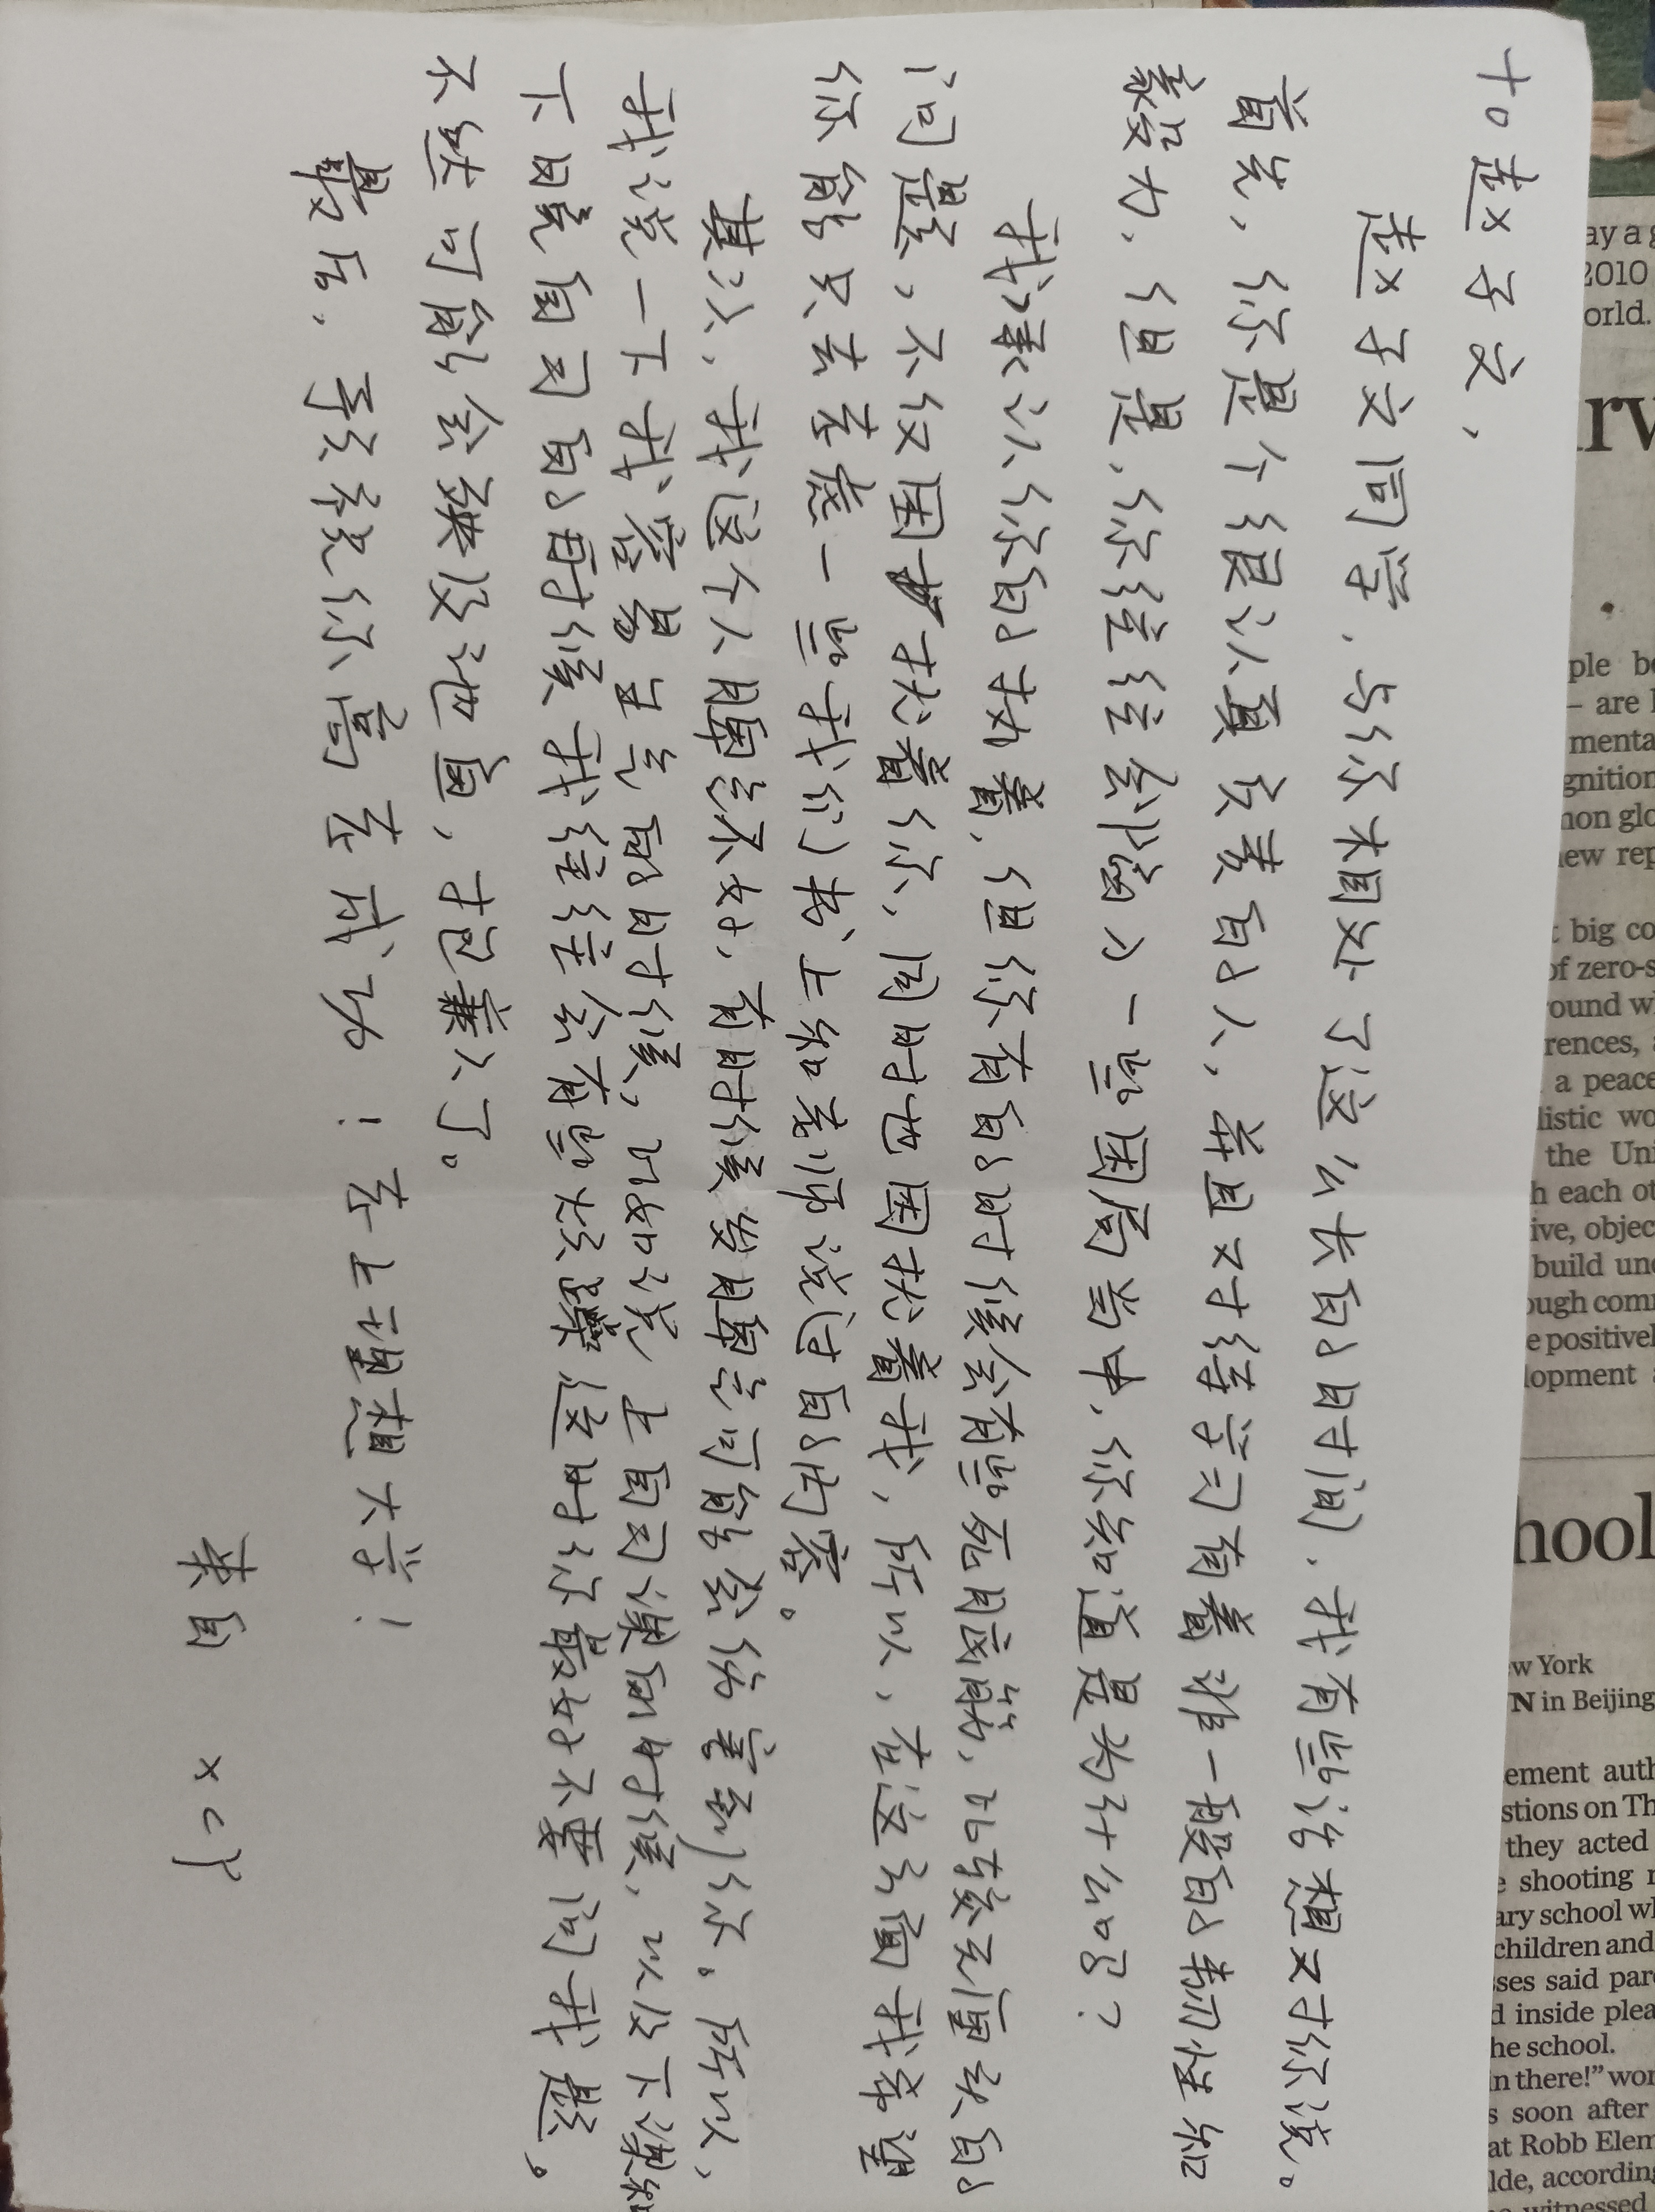 to 赵子文,
赵子文同学,与你相处了这么长的时间,我有些话想对你说。
首先,你是个很认真负责的人,并且对待学习有着非一般的韧性和
毅力,但是,你往往会陷入一些困局当中,你知道是为什么吗?
我承认你的执着,但你有的时候会有些死脑筋,比较刁钻的
问题,不仅困扰着你,同时也困扰着我,所以,在这方面我希望
你能只去考虑一些我们书上和老师说过的内容。
其次,我这个人脾气不好,有时候发脾气可能会伤害到你。所以,
我说一下我容易生气的时候,比如说上自习课的时候,以及下课和
下晚自习的时候我往往会有些烦躁这时你最好不要问我题。
不然可能会殃及池鱼,抱歉了。
最后,予祝你高考成功!考上理想大学!
来自 xcy
ay a g
2010
orld.
ple be
– are l
menta
gnition
non glo
new rep
big co
of zero-s
round wh
rences, a
a peace
listic wo
the Uni
h each ot
ive, objec
build und
ough comm
e positivel
lopment a
hool
w York
N in Beijing
ement auth
stions on Th
they acted
e shooting r
ary school wh
children and
sses said pare
d inside plea
he school.
n there!” wor
s soon after
at Robb Elem
lde, according
witnessed